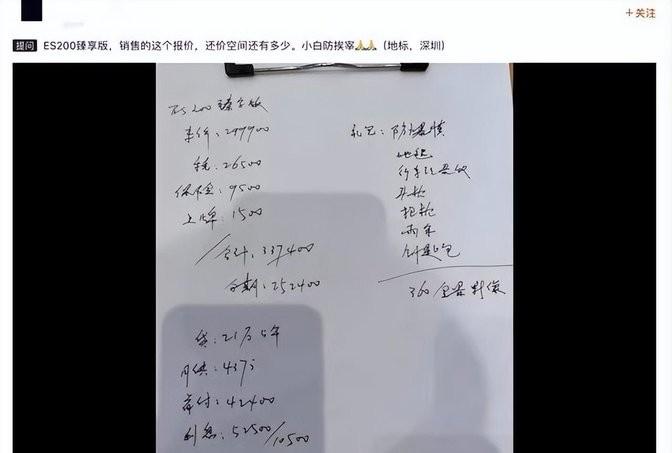 +关注
提问 ES200臻享版，销售的这个报价，还价空间还有多少。小白防挨宰🙏🙏（地标，深圳）
ES200臻享版
车价：299900
税：26500
保险：9500
上牌：1500
合计：337400
分期：252400
贷：21万 5年
月供：4375
首付：42400
利息：52500/10500
礼包：防爆膜
地毯
行车记录仪
头枕
抱枕
雨伞
钥匙包
360全景影像